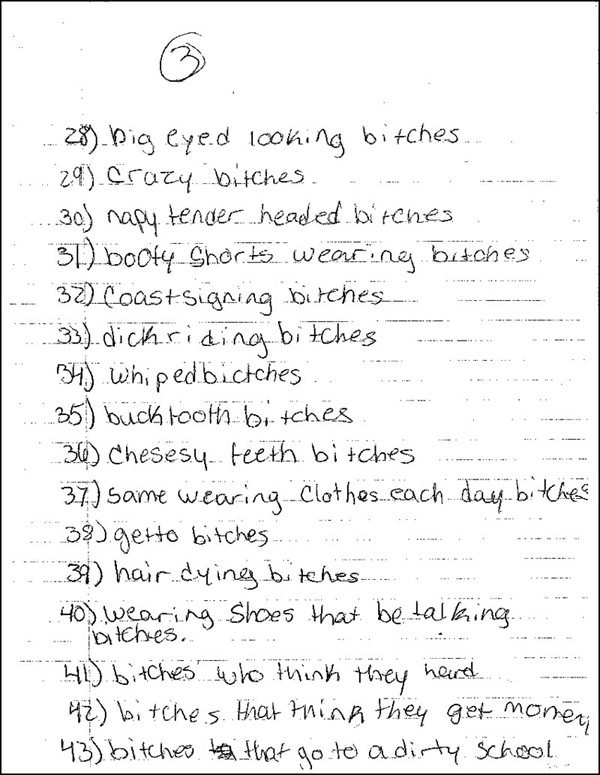 3
28) big eyed looking bitches
29) Crazy bitches
30) napy tender headed bitches
31) booty shorts wearing bitches
32) Coastsigning bitches
33) dick riding bitches
34) whiped bictches
35) bucktooth bitches
36) chesesy teeth bitches
37) same wearing clothes each day bitches
38) getto bitches
39) hair dying bitches
40) wearing shoes that be talking
bitches.
41) bitches who think they heard
42) bitches that think they get money
43) bitches that go to a dirty school